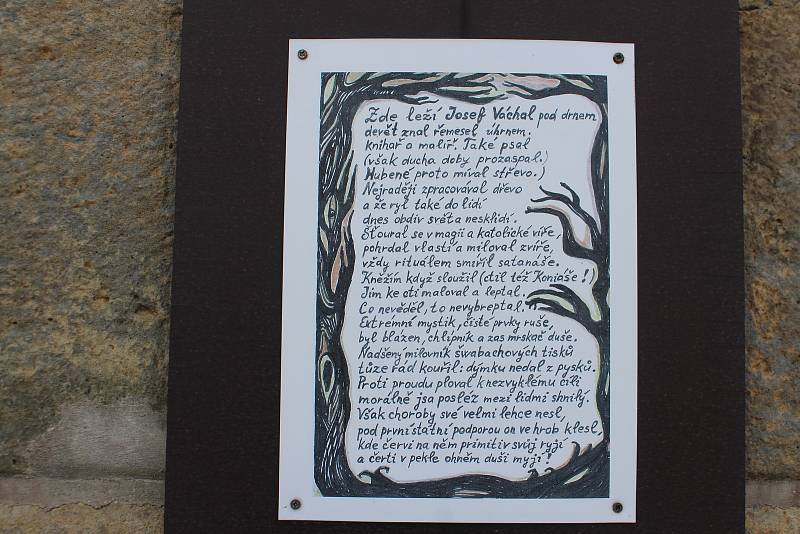 Zde leží Josef Váchal pod drnem
devět znal řemesel úhrnem.
knihař a malíř. Také psal
(však ducha doby prozaspal.)
Hubené proto míval střevo.)
Nejraději zpracovával dřevo
a že ryl také do lidí
dnes obdiv světa nesklidí.
Šťoural se v magii a katolické víře,
pohrdal vlastí a miloval zvíře,
vždy rituálem smířil satanáše.
Kněžím když sloužil (ctil též Koniáše!)
Jim ke cti maloval a leptal.
Co nevěděl, to nevybreptal.
Extrémní mystik, čisté prvky ruše,
byl blázen, chlípník a zas mrskač duše.
Nadšený milovník švabachových tisků
tůze rád kouřil: dýmku nedal z pysků.
Proti proudu ploval k nezvyklému cíli
morálně jsa posléz mezi lidmi shnilý.
Však choroby své velmi lehce nesl,
pod první státní podporou on ve hrob klesl,
kde červi na něm primitiv svůj ryjí
a čerti v pekle ohněm duši myjí!